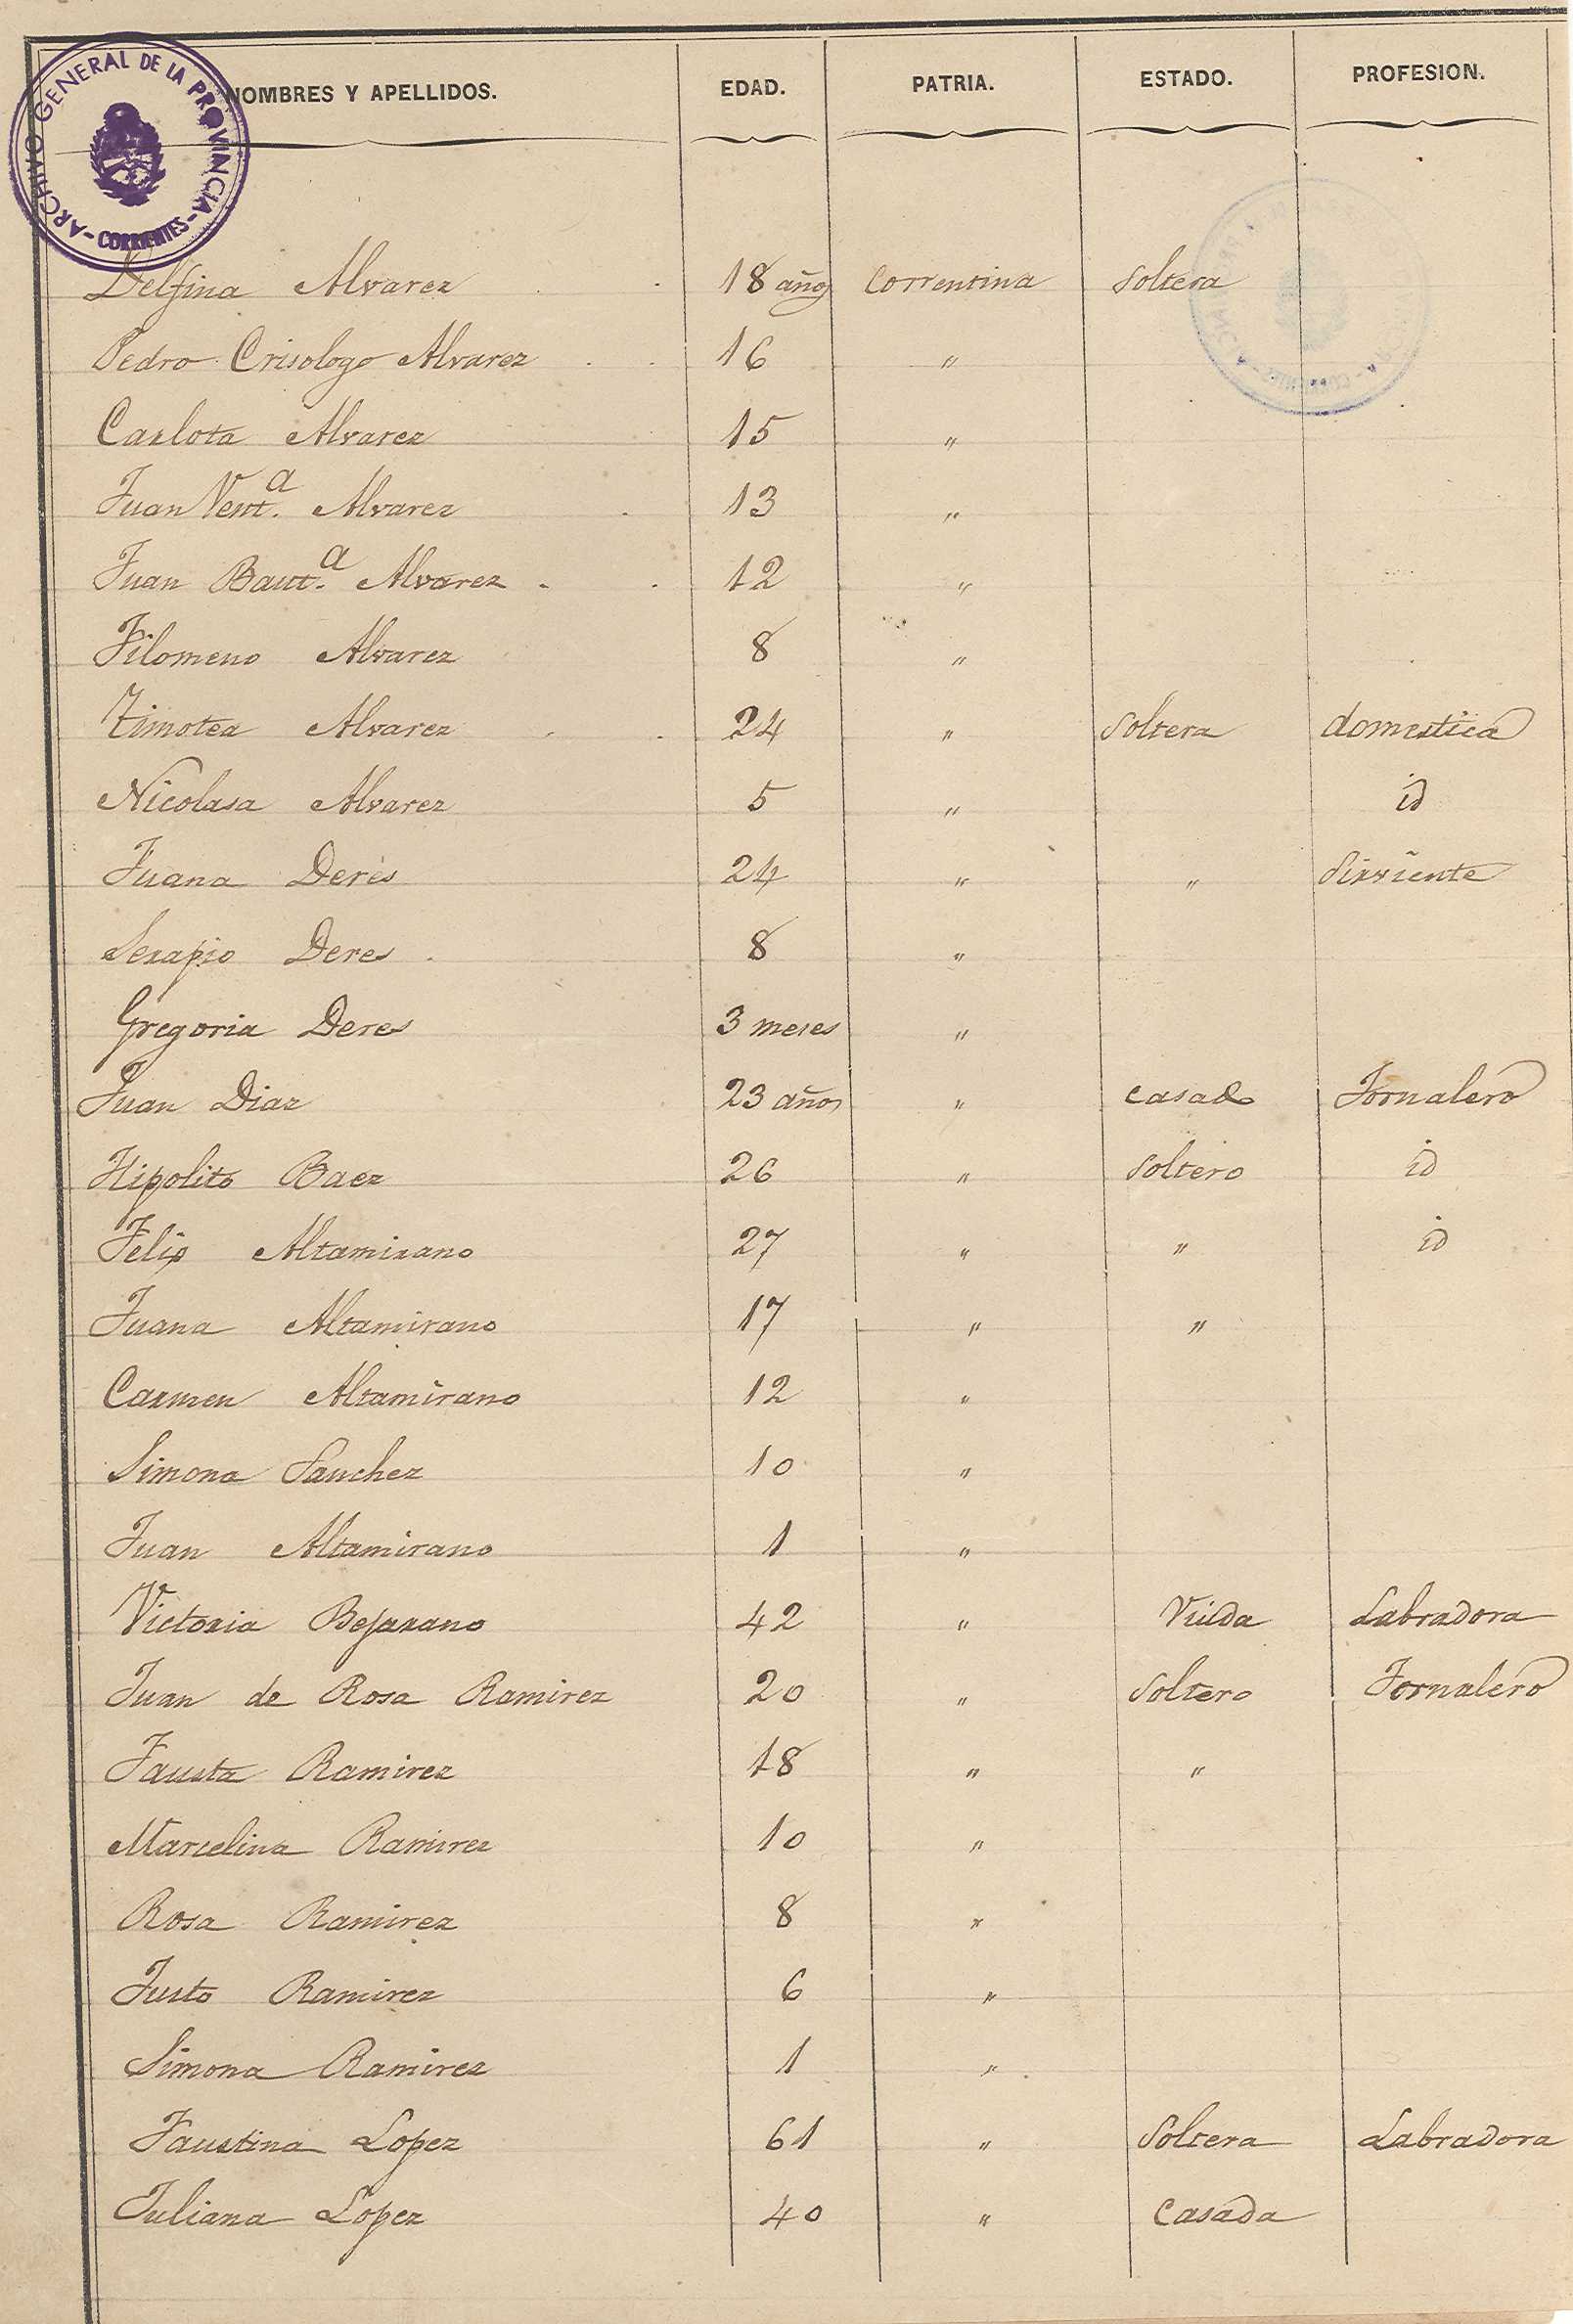 ARCHIVO GENERAL DE LA PROVINCIA - CORRIENTES -
NOMBRES Y APELLIDOS. EDAD. PATRIA. ESTADO. PROFESION.
Delfina Alvarez 18 años Correntina Soltera
Pedro Crisologo Alvarez 16 "
Carlota Alvarez 15 "
Juan Vent.a Alvarez 13 "
Juan Baut.a Alvarez 12 "
Filomeno Alvarez 8 "
Timotea Alvarez 24 " Soltera domestica
Nicolasa Alvarez 5 " id
Juana Deres 24 " " Sirviente
Serapio Deres 8 "
Gregoria Deres 3 meses "
Juan Diaz 23 años " casado Jornalero
Hipolito Baez 26 " Soltero id
Felix Altamirano 27 " " id
Juana Altamirano 17 " "
Carmen Altamirano 12 "
Simona Sanchez 10 "
Juan Altamirano 1 "
Victoria Bejarano 42 " Viuda Labradora
Juan de Rosa Ramirez 20 " Soltero Jornalero
Fausta Ramirez 18 " "
Marcelina Ramirez 10 "
Rosa Ramirez 8 "
Justo Ramirez 6 "
Simona Ramirez 1 "
Faustina Lopez 61 " Soltera Labradora
Juliana Lopez 40 " Casada